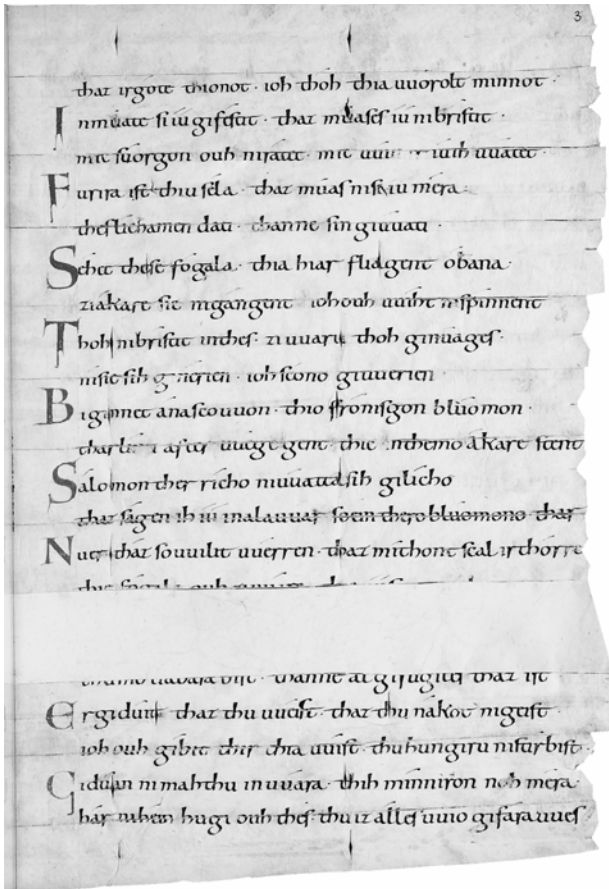 3
thaz irgote thionot · ioh thoh thia uuorolt minnot ·
Inmuate si iu gifestit · thaz muases iu nibristit ·
mit suorgon ouh niratet · mit iuih uuatet ·
Furira ist thiu sela · thaz muas niskiu mera ·
thes lichamen dati · thanne sin giuuati ·
Sehet these fogala · thia hiar fliagent obana ·
ziakare sie nigangent · ioh ouh uuiht nispinnent
Thoh nibristit inthes · zi uuaru thoh ginuages ·
nisie sih ginerien · ioh scono giuuerien
Biginnet anascouuon · thio fronisgon bluomon ·
thar liuti after uuege gent · thie inthemo akare stent
Salomon ther richo niuuatta sih gilicho
thaz sagen ih iu inalauuar soein thero bluomono thar
Nuer thaz souuilit uuerren · thaz mithont scal irthorre
thie fogala ouh
thanne al gifugiter thaz ist
Ergiduit thaz thu uueist · thaz thu nakot nigeist ·
ioh ouh gibit thir thia uuist · thuhungiru nirstirbist ·
Giduan ni mahthu inuuara · thih minniron noh mera ·
hugi ouh thes thu iz alles uuio gifara uues